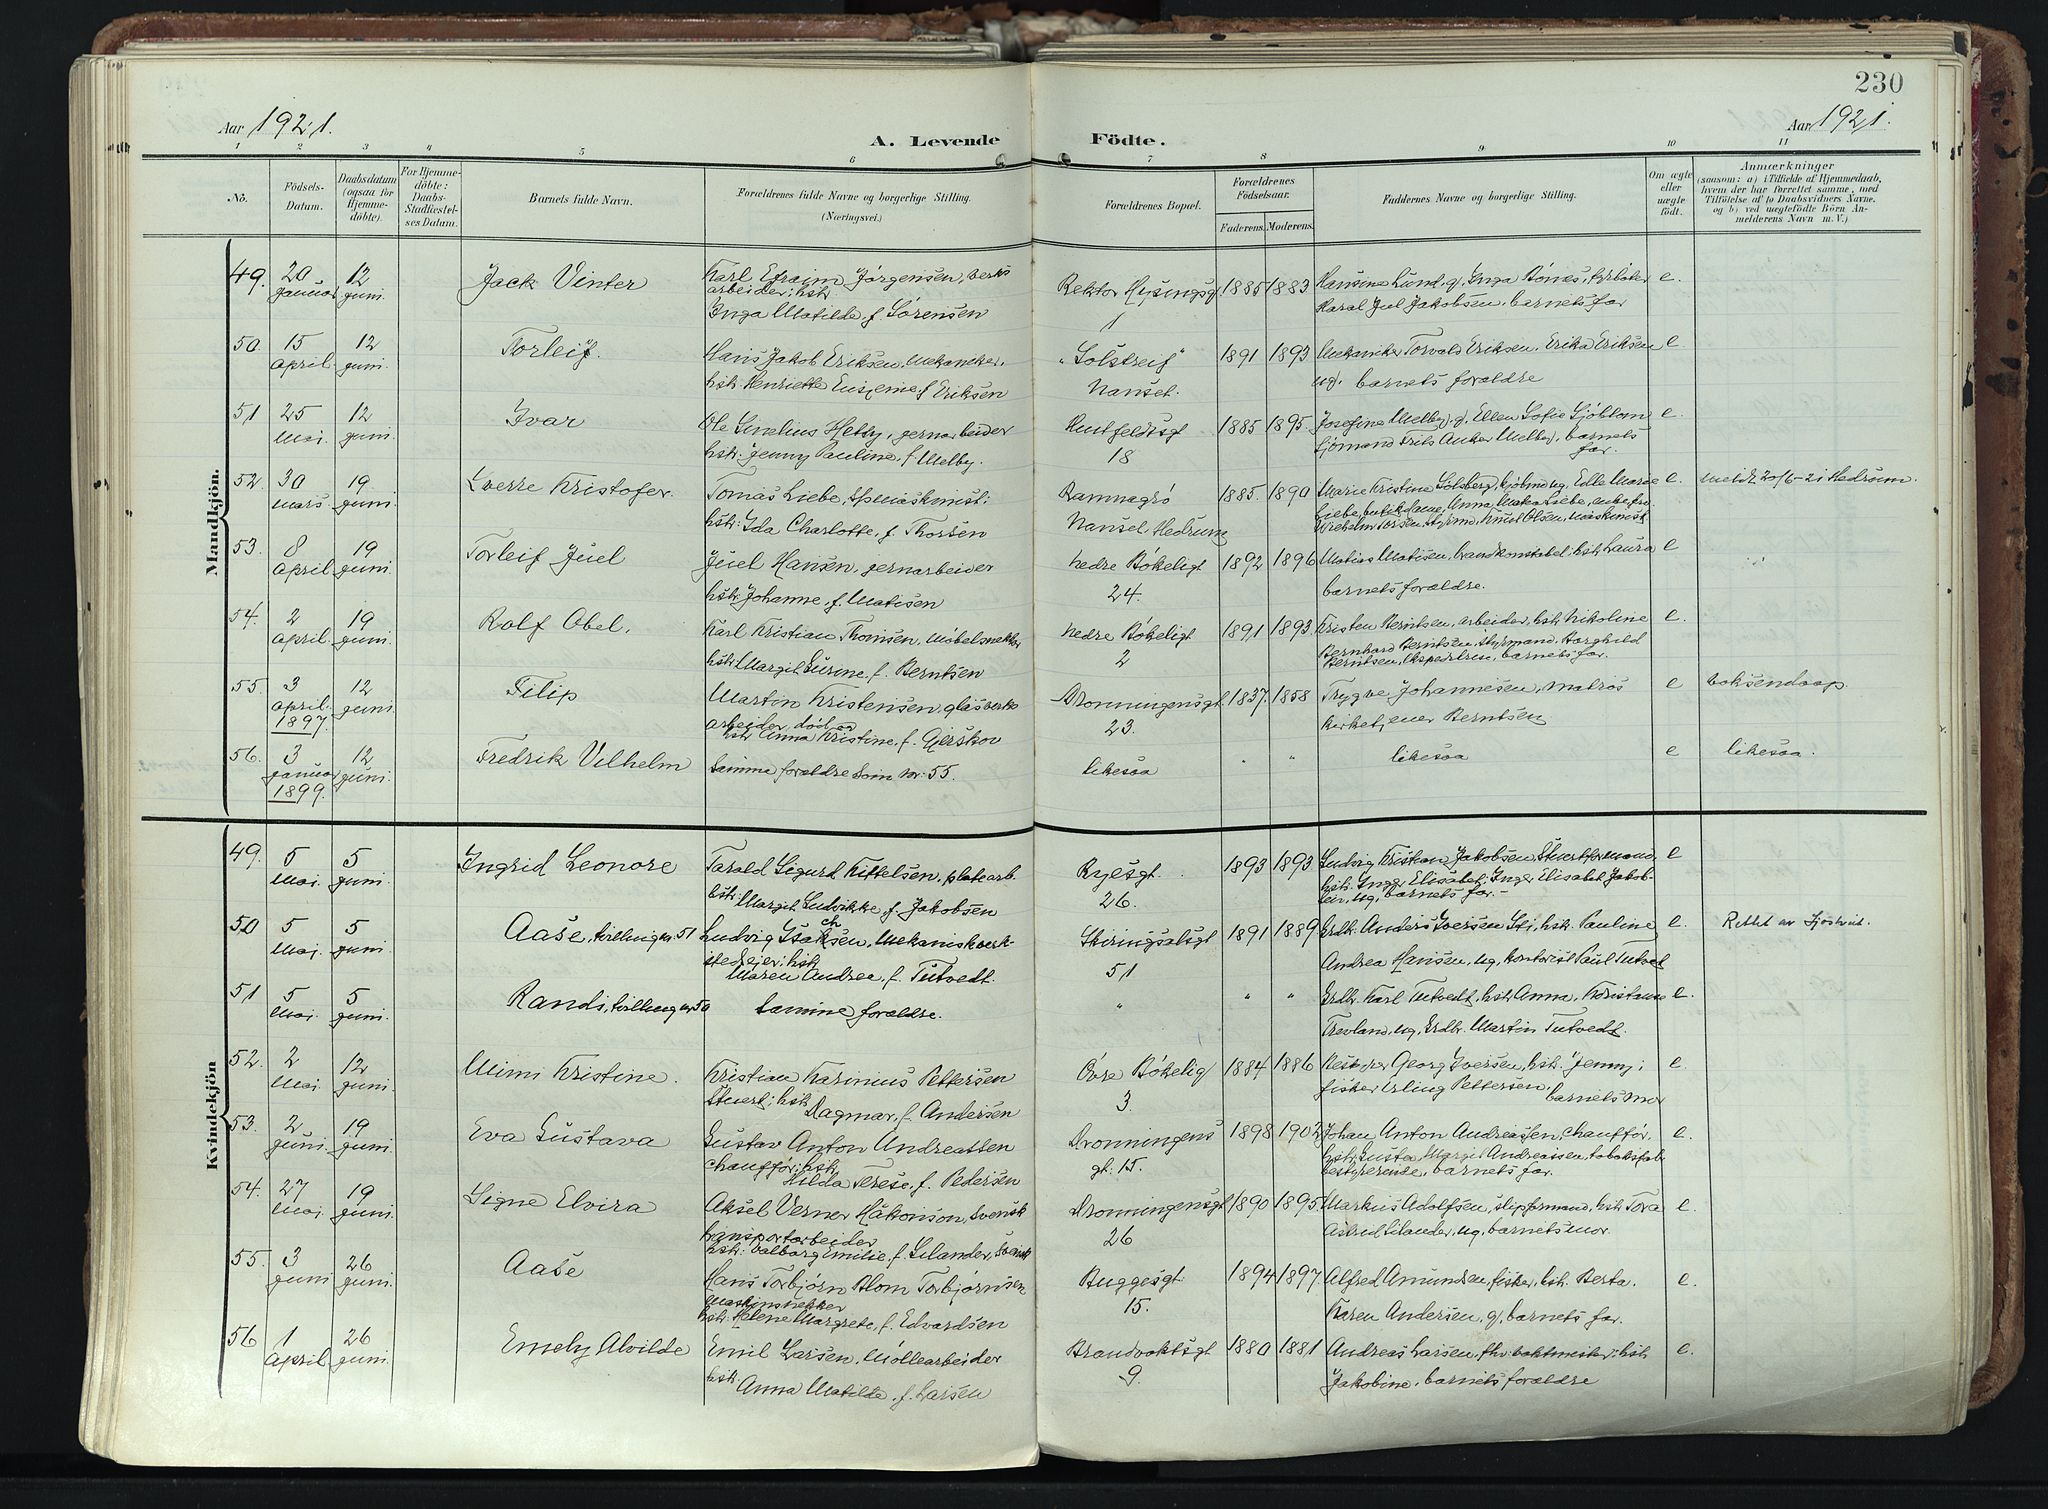 230
Aar 1921.
A. Levende Födte.
Aar 1921.
1 2 3 4 5 6 7 8 9 10 11
No.
Födsels-Datum.
Daabsdatum (ogsaa for Hjemmedöbte).
For Hjemmedöbte: Daabs-Stadfæstelses Datum.
Barnets fulde Navn.
Forældrenes fulde Navne og borgerlige Stilling.
(Næringsvei.)
Forældrenes Bopæl.
Forældrenes Födselsaar.
Faderens. Moderens.
Faddernes Navne og borgerlige Stilling.
Om ægte eller uægte födt.
Anmærkninger
(saasom: a) i Tilfælde af Hjemmedaab, hvem der har forrettet samme, med Tilföielse af to Daabsvidners Navne, og b) ved uægtefödte Börn Anmelderens Navn m. V.)
Mandkjön.
49. 20 januar 12 juni. Jack Vinter Karl Efraim Jørgensen, verks
arbeider; hst
Inga Matilde, f Sørensen
Rektor Hysingsg 1 1885 1883 Hansine Lund, g, Inga Bønes,
Haral Jul Jakobsen, barnets far e.
50. 15 april. 12 juni. Torleif. Hans Jakob Eriksen, mekaniker,
hst. Henriette Eugenie, f Eriksen
"Solstreif" Nanset. 1891 1893 Mekaniker Torvald Eriksen, Erika Eriksen
ug. barnets forældre e.
51 25 mai. 12 juni. Ivar Ole Sinelius Helby, jernarbeider
hst. Jenny Pauline, f Melby.
Huitfeldtsgt 18 1885 1895. Josefine Melby, g, Ellen Sofie Sjöblom
sjömand Frits Anker Melby, barnets
far. e.
52. 30 mars 19 juni. Sverre Kristofer. Tomas Liebe, maskinist;
hst: Ida Charlotte, f Thorsen
Ramnagrø Nanset, Hedrum 1885. 1890 Marie Kristine Solsberg, kjøbm ug, Edle Marie
Liebe, butikdame, Anna
Vilhelm Torsen, styrmd, Knut Olsen, maskinist e meldt 20/6-21 Hedrum.
53. 8 april 19 juni. Torleif Juel Juel Hansen, jernarbeider
hst. Johanne, f. Matisen
nedre Bökeligt 24. 1892 1896 Matias Matisen, brandkonstabel, hst Laura
barnets forældre. e
54. 2 april. 19 juni. Rolf Obel. Karl Kristian Thomsen, møbelsnekker
hst. Margit Surine, f. Berntsen
nedre Bökeligt 2 1891 1893 Kristen Berntsen, arbeider, hst Nikoline
Bernhard Berntsen, styrmand, Borghild
Berntsen, ekspeditrise, barnets far. e.
55. 3 april. 1897. 12 juni. Filip Martin Kristensen, glasverks
arbeider, død og
hst Anna Kristine, f. Gjerskov
Dronningensgt 23. 1837. 1858 Trygve Johannesen, matros
Berntsen e voksendaap.
56. 3 januar 1899. 12 juni. Fredrik Vilhelm Samme forældre som nr: 55.
likesaa " " likesaa e likesaa.
Kvindekjön
49. 5 Mai. 5 juni. Ingrid Leonore Tarald Sigurd Kittelsen, platearb.
hst: Margit Ludvikke, f. Jakobsen
Ryesgt. 26. 1893 1893 Ludvig Kristian Jakobsen,
hst. Inger Elisabet; Inger Elisabet Jakob-
sen, ug, barnets far.- e
50 5 Mai. 5 juni. Aase, tvilling nr 51 Ludvig Isaksen, mekanisk verk-
stedeier; hst
Maren Andrea, f. Tutvedt.
Skiringsalsgt 51 1891 1889 Grdbr. Anders Iversen Sti, hst. Pauline
Andrea Hansen, ug, kontorist Paul Tutvet e. Rettet av Sjostvet.
51 5 Mai. 5 juni. Randi, tvilling nr 50 samme forældre.
" " " Grdbr. Karl Tutvedt, hst Anna, Kristiane
Trevland, ug, Grdbr. Martin Tutvedt. e.
52. 2 Mai. 12 juni. Mimi Kristine. Kristian Karinius Pettersen
Stuert; hst
Dagmar, f. Andersen
Övre Bökelig 3. 1884 1886 Georg Iversen, hst. Jenny;
fisker Erling Pettersen,
barnets mor e.
53. 2 juni. 19 juni. Eva Gustava Gustav Anton Andreassen
chauffør; hst
Hilda Terese, f. Pedersen
Dronningens gt. 15. 1898 1902 Johan Anton Andreassen, chauffør,
hst Gusta, Margit Andreassen,
bestyrerende, barnets far. e.
54. 27 mai. 19 juni. Signe Elvira Aksel Verner Håkonson, svensk
transportarbeider
hst: Valborg Emilie, f. Selander, svensk
Dronningensgt 26 1890 1895. Markus Adolfsen, slipformand, hst Tora
Astrid Selander, ug, barnets mor. e.
55. 3 juni 26 juni. Aase Hans Torbjørn Blom Torbjørnsen
maskinsnekker
hst. Helene Margrete, f. Edvardsen
Buggesgt 15. 1894 1897. Alfred Amundsen, fisker, hst. Berta.
Karen Andersen, g, barnets far. e.
56 1 april. 26 juni. Emely Alvilde Emil Larsen, Möllearbeider
hst:
Anna Matilde, f. Larsen
Brandvaktsgt 9. 1880 1881 Andreas Larsen, fhv. vaktmester; hst
Jakobine, barnets forældre e.